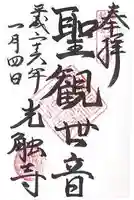 奉拝
聖観世音
光触寺
平成二十六年
一月四日